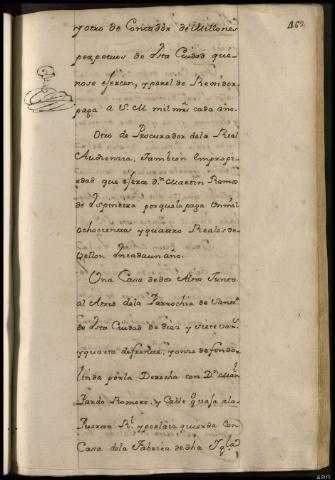 462
y otro de Contador de Millones
perpetuos de esta Ciudad que
no se ejercen, y por el de Remidor
paga a S. M. mil mrs. cada año.
Otro de Procurador de la Real
Audiencia, tambien empropi-
edad que ejerce Dn. Martin Ramos
de Espinosa por que le paga Un mil
ochocientos y quattro Reales de
Vellon encada un año.
Una Casa de dos Altos Junto
al Atrio dela Parrochia de
de esta Ciudad de diez y siete var.s
y quarta de frente, y onze de fondo
linda por la Derecha con Dn.
Pardo Romero, y Calle q.e vaja ala
Puerta Rl. y por la izquierda con
Casa dela Fabrica de dha Igla.